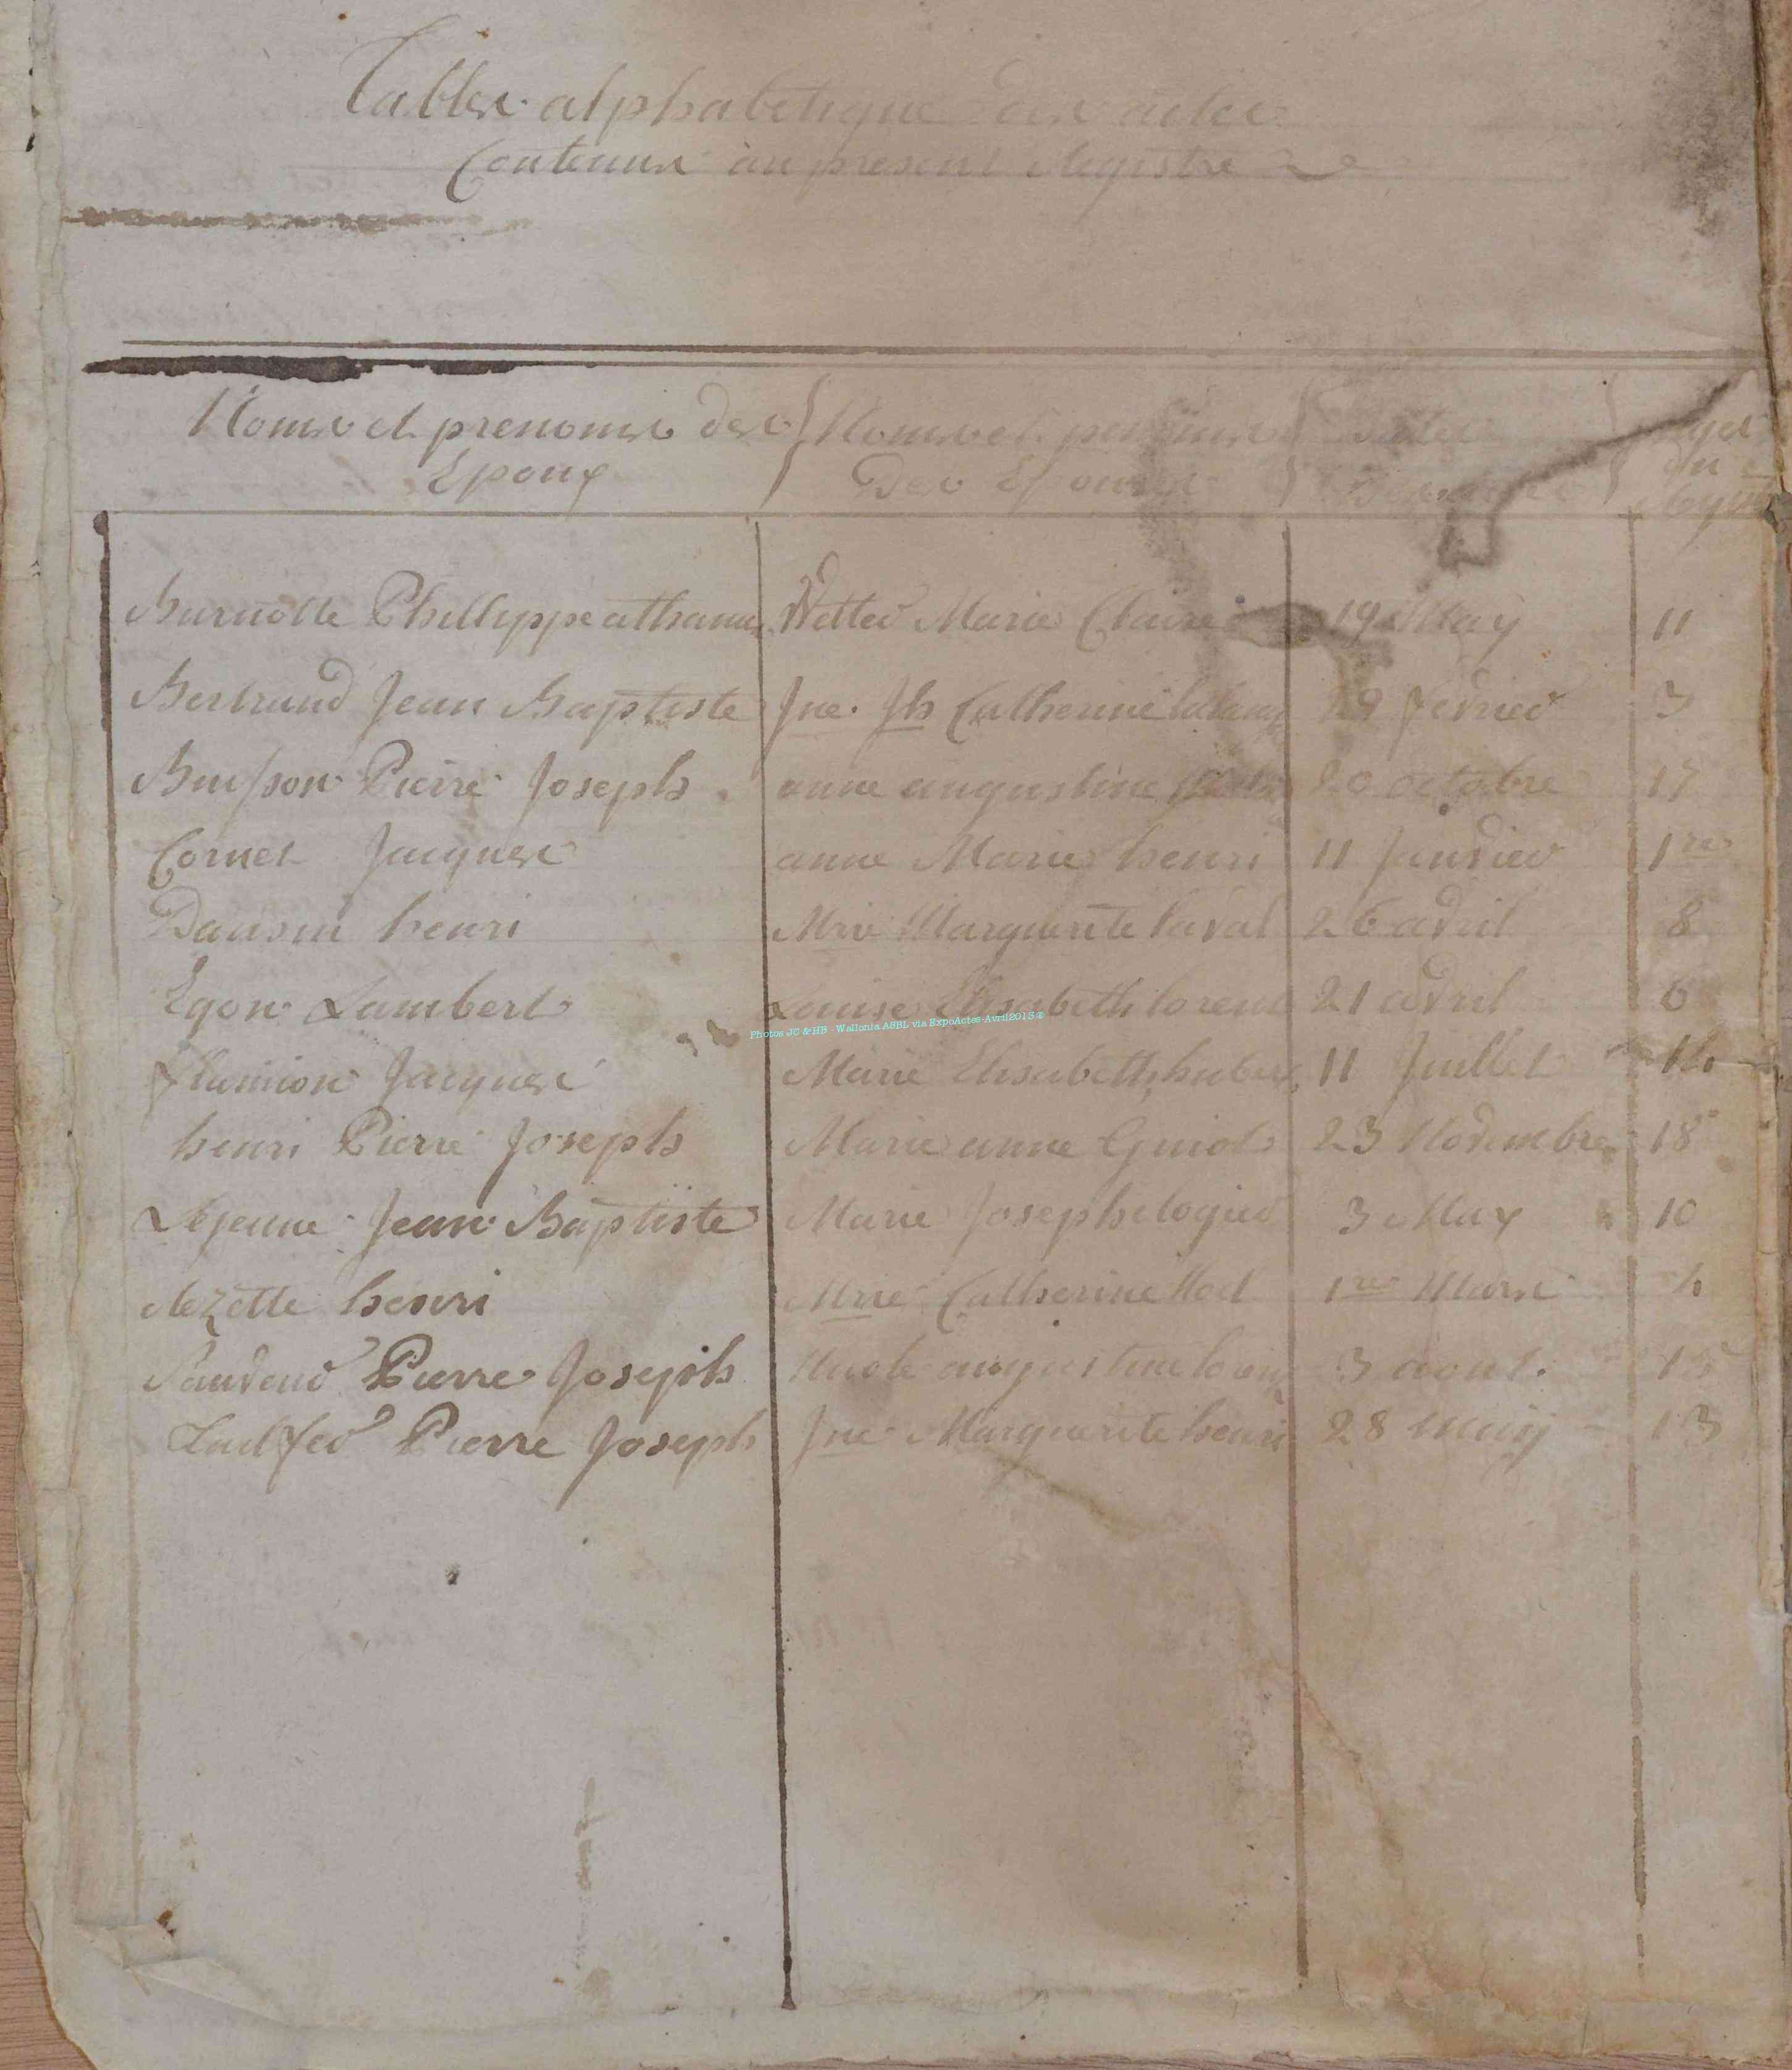 Tables alphabetique des actes
Contenus au present Registre
Noms et prenoms des Noms et prenoms Dates
Epoux Des Epouses du
Burnotte Phillyppe athanas Wetter Marie Claire 19 May 11
Bertrand Jean Baptiste Jne. Jh Catherine 29 fevrier 3
Buisson Pierre Joseph anne augustine 20 octobre 17
Cornet Jacques anne Marie henri 11 Janvier 1re
Dausin henri Mrie Marguerite laval 26 avril 8
Egon Lambert Louise Elisabeth lorent 21 avril 6
flamion Jacques Marie Elisabeth hubert 11 Juillet 14
henri Pierre Joseph Marie anne Guiot 23 Novembre 18
Lejeune Jean Baptiste Marie Joseph logier 3 May 10
Rezette henri Mrie Catherine Noel 1re Mars 4
Pierre Joseph augustine 3 aout. 15
Pierre Joseph Jne Marguerite henri 28 may 13
Photos JC & HB - Wallonia ASBL via ExpoActes-Avril2013 ©